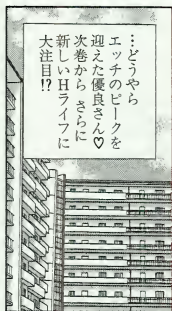 …どうやら
エッチのピークを
迎えた優良さん♡
次巻から さらに
新しいHライフに
大注目!?